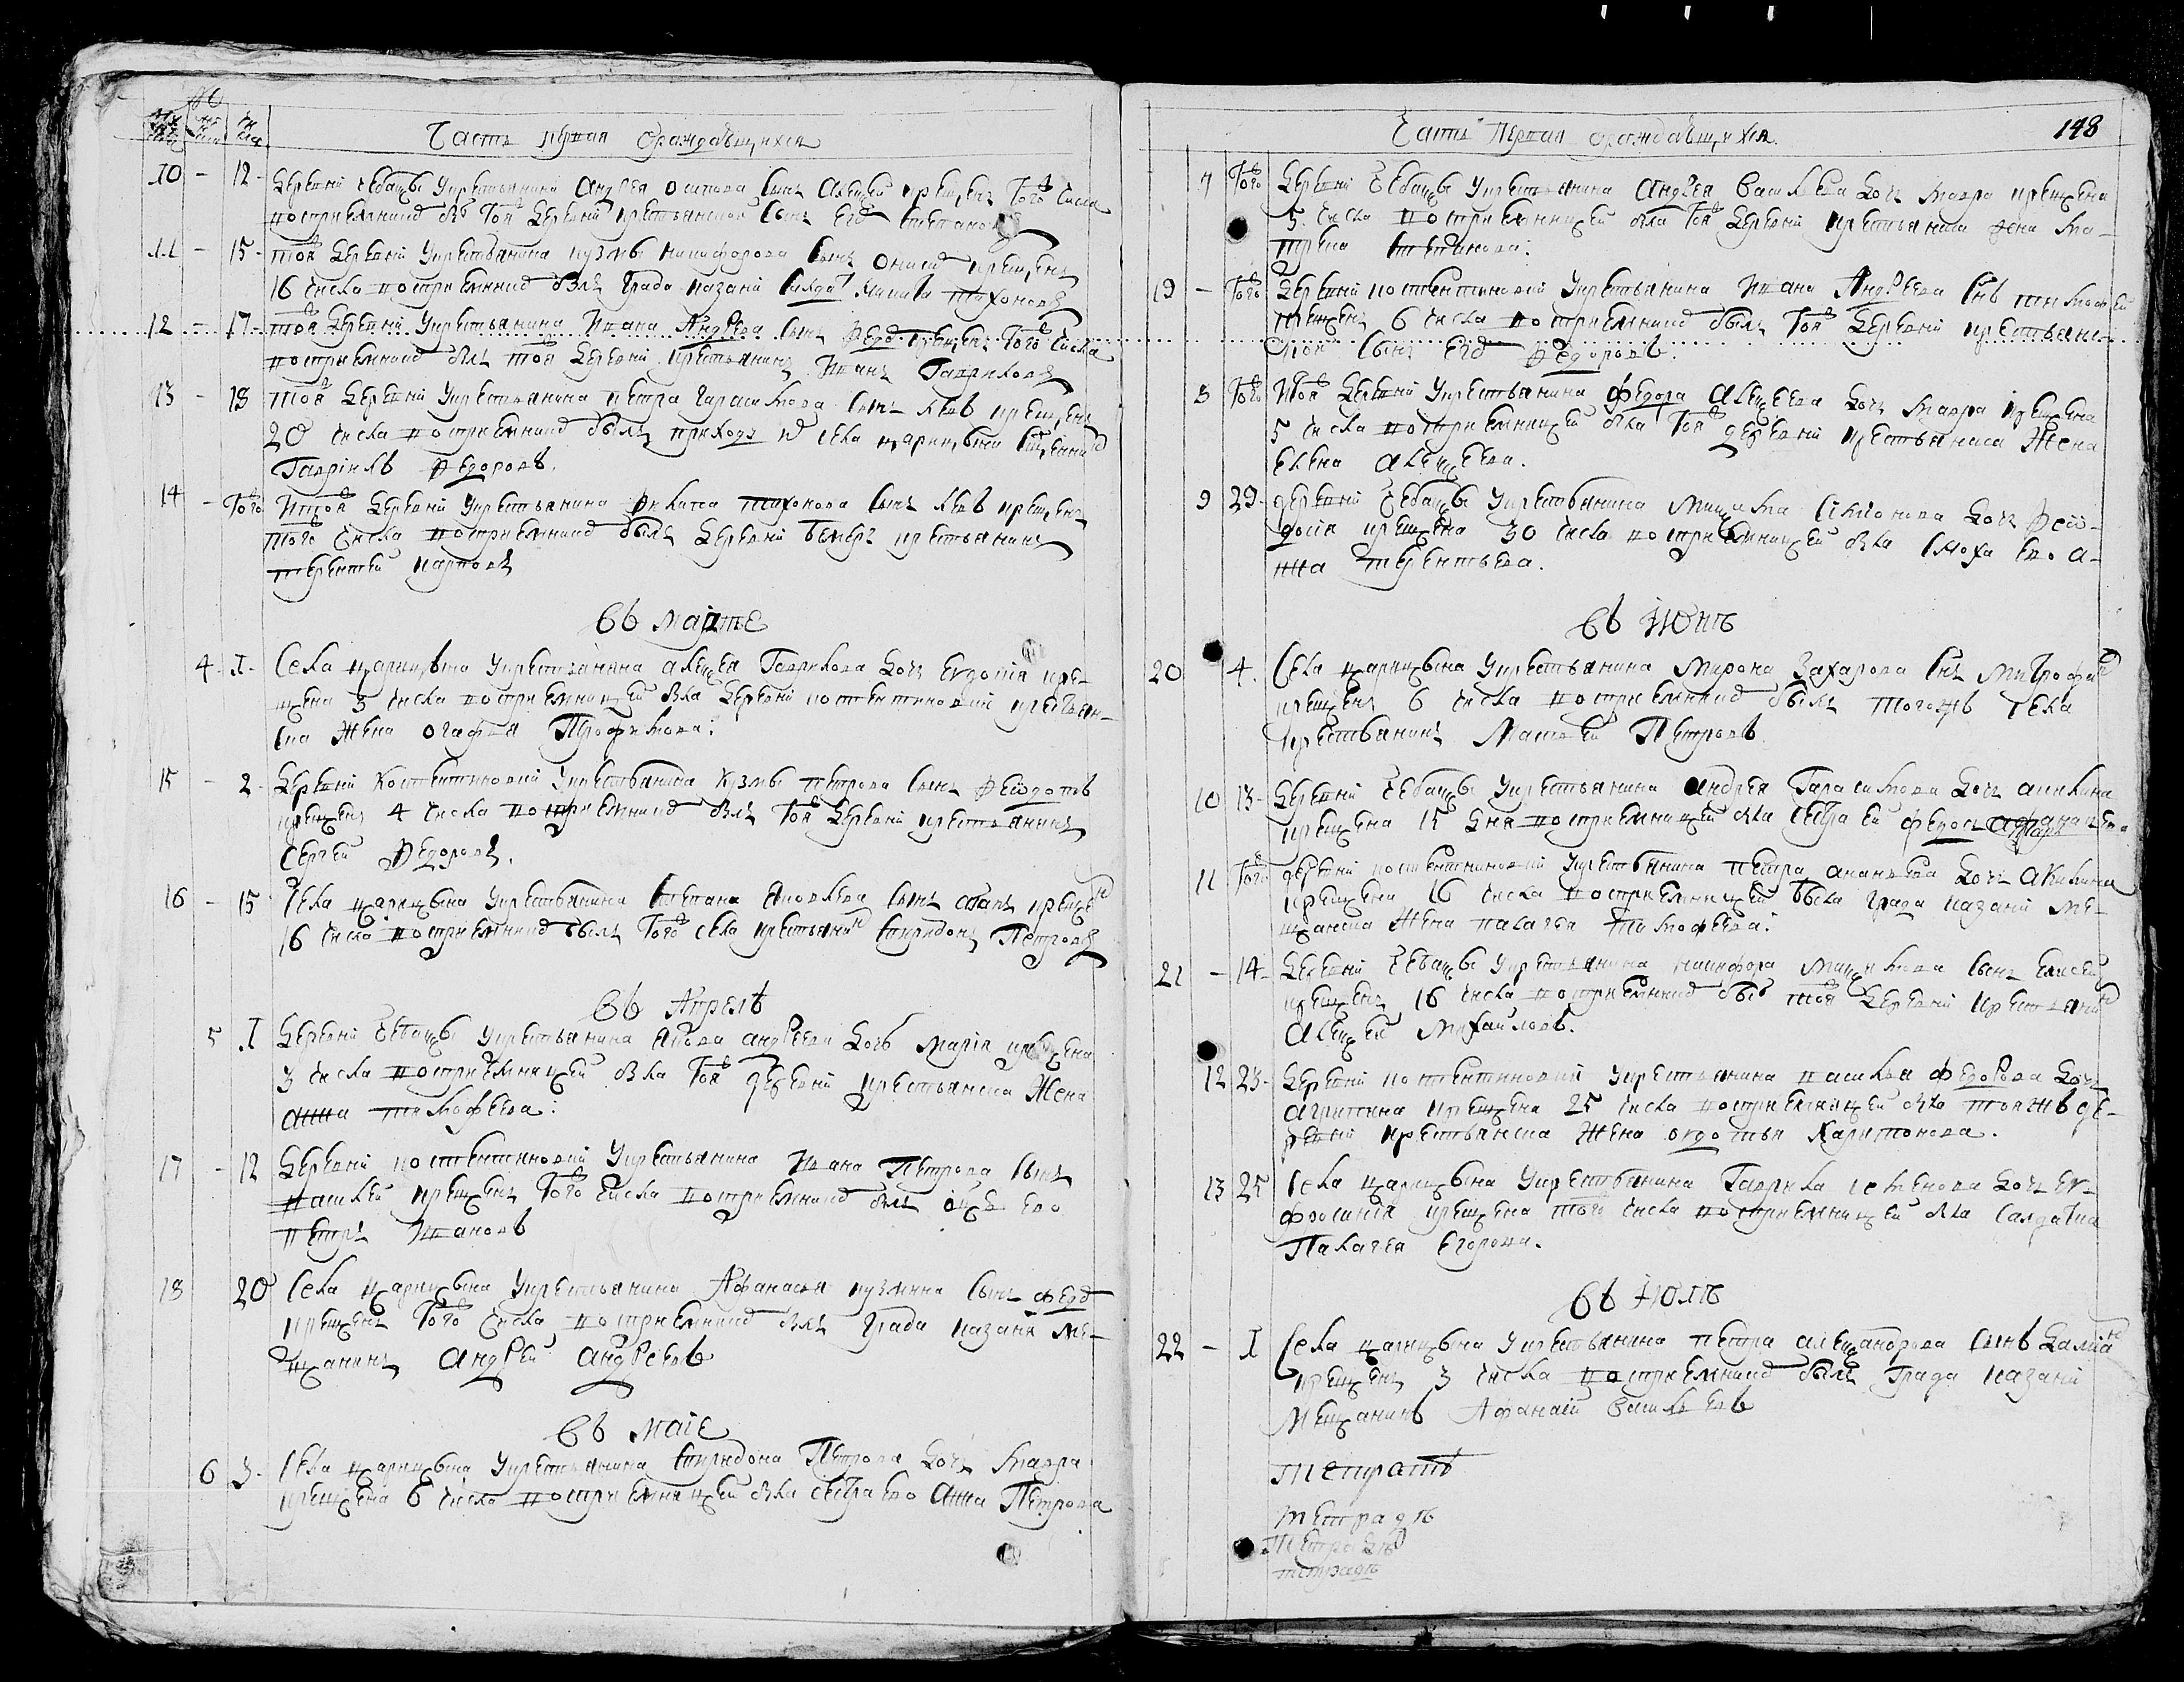 Часть первая ораждавшихся
10 - 12 - деревни чебакцы укрестьянина Андрея осипова сынъ Алексей крещенъ того числа
восприемникъ былъ той деревни крестьянской сынъ Егоръ Степановъ
11 - 15 - той деревни укрестьянина кузмы никифорова сынъ крещенъ
16 числа восприемникъ былъ града казани салдатъ Тихоновъ
12 - 17 - той деревни укрестьянина Ивана Андреева сынъ Федоръ крещенъ того числа
восприемникъ былъ той деревни крестьянинъ Иванъ Гавриловъ
13 - 18 той деревни укрестьянина петра герасимова сынъ левъ крещенъ
20 числа восприемникъ былъ приходу села царицына священникъ
Гаврилъ Федоровъ.
14 - Того той деревни укрестьянина тихонова сынъ левъ крещенъ
того числа восприемникъ былъ деревни крестьянинъ
терентей карповъ
въ марте
4 - 1 - Села царицына укрестьянина алексея Гаврилова дочь Евдокия кре-
щена 3 числа восприемницей была деревни костентиновки крестьян-
ска жена огафья Трофимова:
15 - 2 - деревни костентиновки укрестьянина кузмы петрова сынъ
крещенъ 4 числа восприемникъ былъ той деревни крестьянинъ
Сергей Федоровъ.
16 - 15 Села царицына укрестьянина Степана Яковлева сынъ крещенъ
16 числа восприемникъ былъ того села крестьянинъ Спиридонъ Петровъ
въ Апреле
5 1 деревни чебакцы укрестьянина андреева дочь Мария крещена
3 числа восприемницей была той деревни крестьянска жена
анна тимофеева:
17 - 12 деревни костентиновки укрестьянина Ивана Петрова сынъ
василей крещенъ того числа восприемникъ былъ ево
петръ Ивановъ
18 20 Села царицына укрестьянина Афанасья кузмина сынъ федоръ
крещенъ того числа восприемникъ былъ града казани ме-
щанинъ Андрей андреевъ
въ маие
6 3 - Села царицына укрестьянина Спиридона Петрова дочь мавра
крещена 6 числа восприемницей была сестра ево анна Петрова
Часть первая ораждавшихся 148
7 Того деревни чебакцы укрестьянина Андрея василева дочь мавра крещена
5 числа восприемницей была той деревни крестьянска жена ма-
трена степанова:
19 - Того деревни костентиновки укрестьянина Ивана Андреева сынъ тимофей
крещенъ 6 числа восприемникъ былъ той деревни крестьянс-
кой сынъ Егоръ Федоровъ.
8 Того той деревни укрестьянина федора алексеева дочь мавра крещена
5 числа восприемницей была той деревни крестьянска жена
елена алексеева.
9 29 - деревни чебакцы укрестьянина максима симионова дочь фео-
досия крещена 30 числа восприемницей была сноха ево а-
нна терентьева.
въ июне
20 4 - Села царицына укрестьянина Мирона Захарова сынъ Митрофанъ
крещенъ 6 числа восприемникъ былъ тогожъ села
крестьянинъ Матвей Петровъ
10 13 - деревни чебакцы укрестьянина андрея Гарасимова дочь акилина
крещена 15 дня восприемницей была сестра ей
11 Того деревни костентиновки укрестьянина петра ананьева дочь Акилина
крещена 16 числа восприемницей была града казани ме-
щанска жена палагея тимофеева:
21 - 14 - деревни чебакцы укрестьянина никифора максимова сынъ елисей
крещенъ 16 числа восприемникъ былъ той деревни крестьянинъ
алексей михайловъ.
12 23 - деревни костентиновки укрестьянина василья федорова дочь
агрипина крещена 25 числа восприемницей была тояжъ де-
ревни крестьянска жена овдотья Харитонова.
13 25 Села царицына укрестьянина Гаврила семенова дочь ев-
фросиния крещена того числа восприемницей была салдатка
Палагея Егорова.
въ июле
22 - 1 Села царицына укрестьянина петра александрова сынъ
крещенъ 3 числа восприемникъ былъ града казани
мещанинъ Афанасий василевъ
тетрать
тетрадь
тетрадь
тетрадь